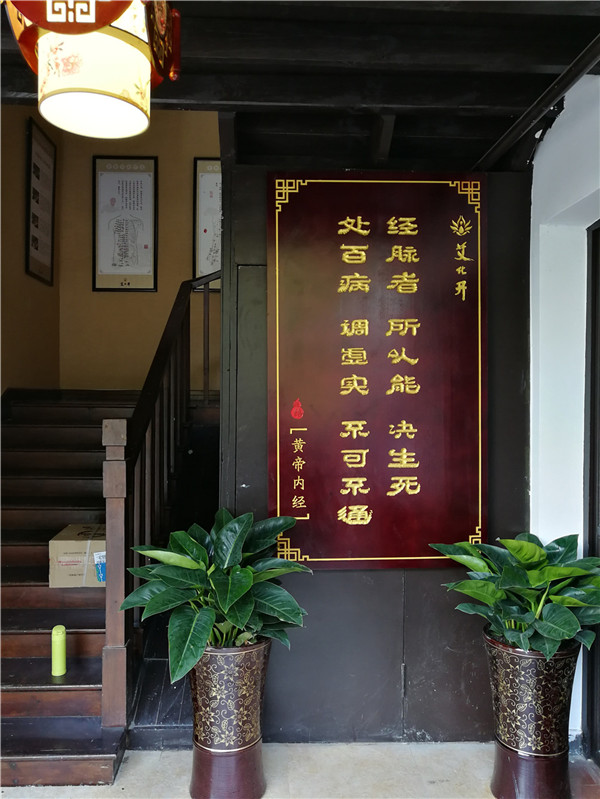 经脉者 所以能 决生死
处百病 调虚实 不可不通
[黄帝内经]